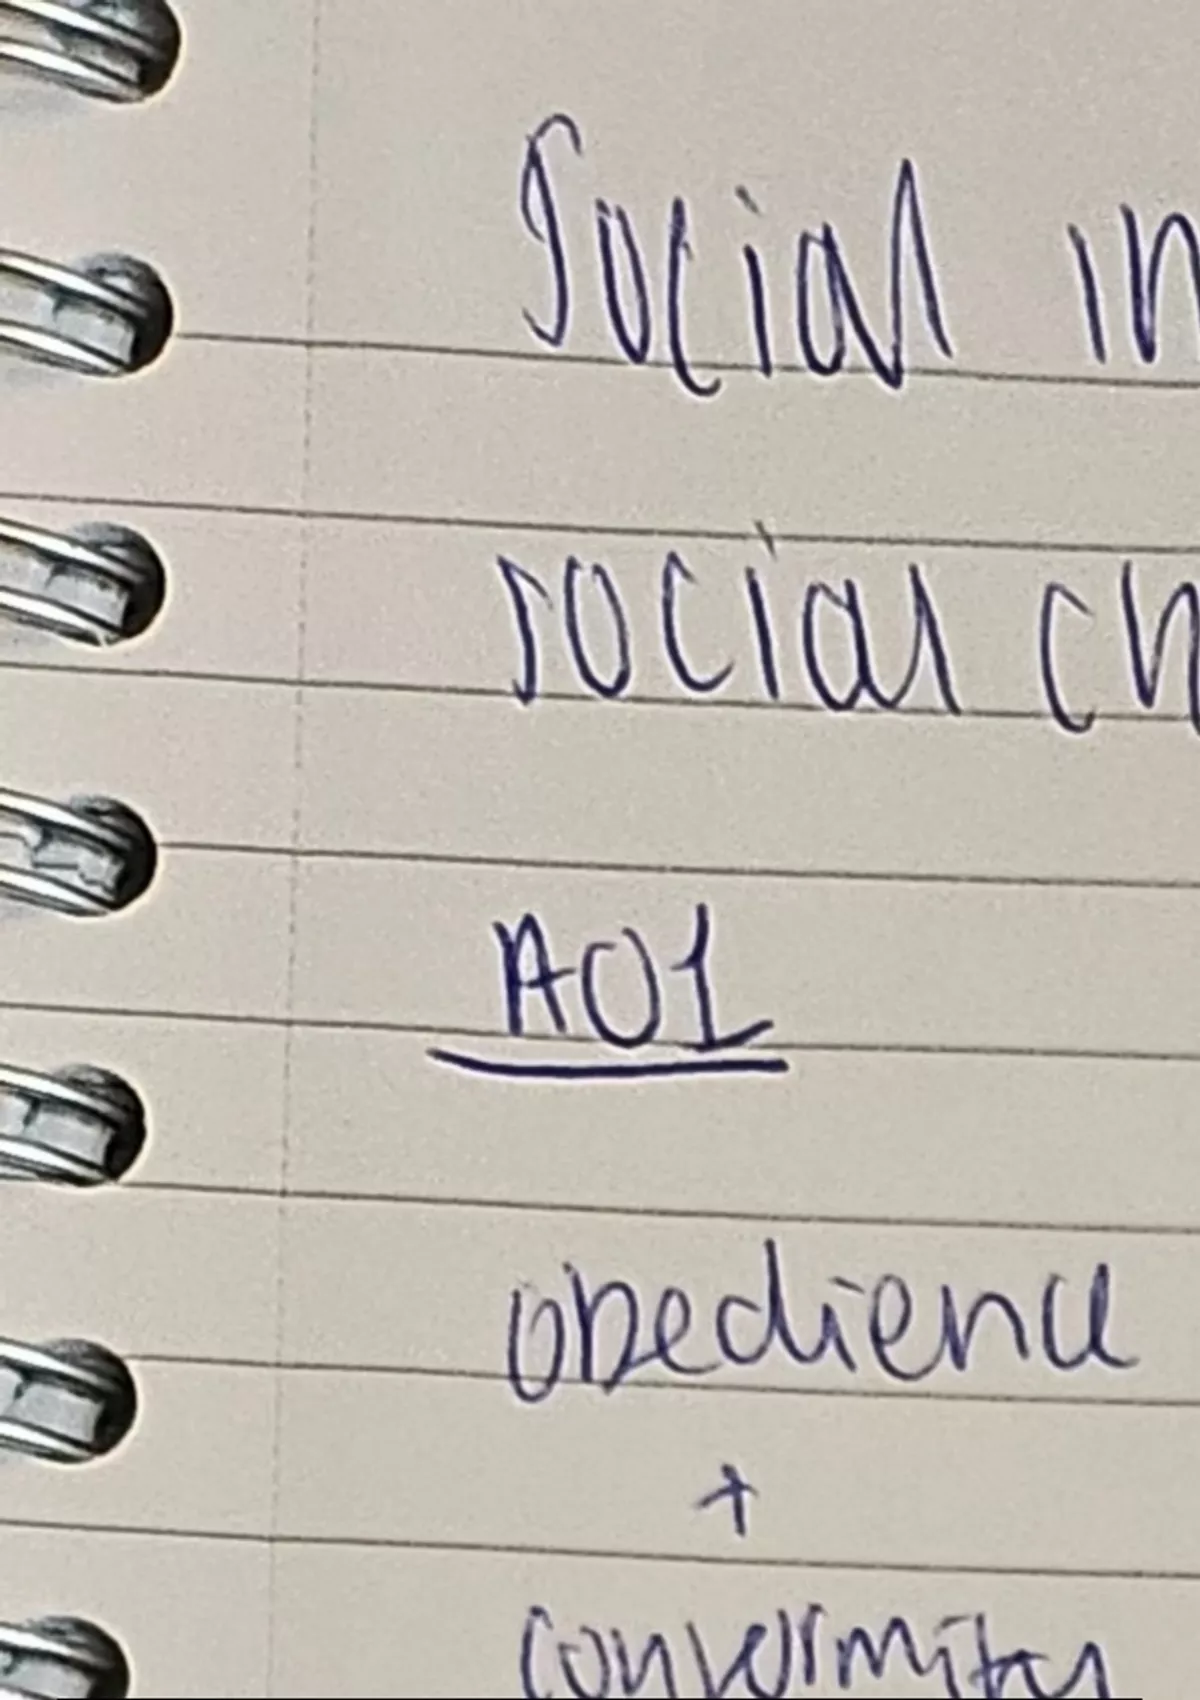 Social in
social ch
AO1
obedience
+
conformity